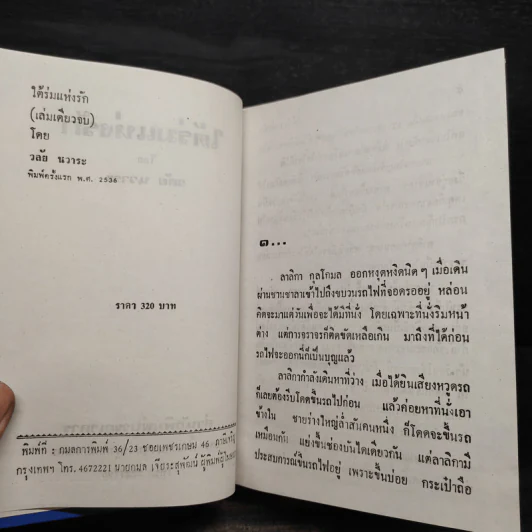 ใต้ร่มแห่งรัก
(เล่มเดียวจบ)
โดย
วลัย นวาระ
พิมพ์ครั้งแรก พ.ศ. 2536
ราคา 320 บาท
พิมพ์ที่ : กมลการพิมพ์ 36/23 ซอยเพชรเกษม 46
กรุงเทพฯ โทร. 4672221 นายกมล เจียระสุพัฒน์ ผู้พิมพ์ผู้โฆษณา
๑...
ลาลิกา กุลโกมล ออกหงุดหงิดนิด ๆ เมื่อเดิน
ผ่านชานชาลาเข้าไปถึงขบวนรถไฟที่จอดรออยู่ หล่อน
คิดจะมาแต่วันเพื่อจะได้มีที่นั่ง โดยเฉพาะที่นั่งริมหน้า
ต่าง แต่การจราจรก็ติดขัดเหลือเกิน มาถึงที่ได้ก่อน
รถไฟจะออกนี่ก็เป็นบุญแล้ว
ลาลิกากำลังเดินหาที่ว่าง เมื่อได้ยินเสียงหวูดรถ
ก็เลยต้องรีบโดดขึ้นรถไปก่อน แล้วค่อยหาที่นั่งเอา
ข้างใน ชายร่างใหญ่ล่ำสันคนหนึ่ง ก็โดดจะขึ้นรถ
เหมือนกัน แย่งขึ้นช่องบันไดเดียวกัน แต่ลาลิกามี
ประสบการณ์ขึ้นรถไฟอยู่ เพราะขึ้นบ่อย กระเป๋าถือ